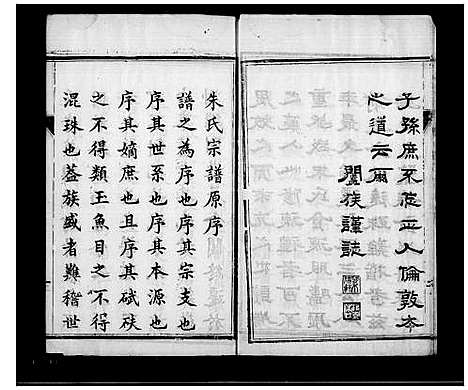 子孫庶不從正人倫敦本
之道云爾
闔族謹誌
朱氏宗譜原序
譜之為序也序其宗支也
序其世系也序其本源也
序其嫡庶也且序其砥砆
之不得類玉魚目之不得
混珠也蓋族盛者難稽世